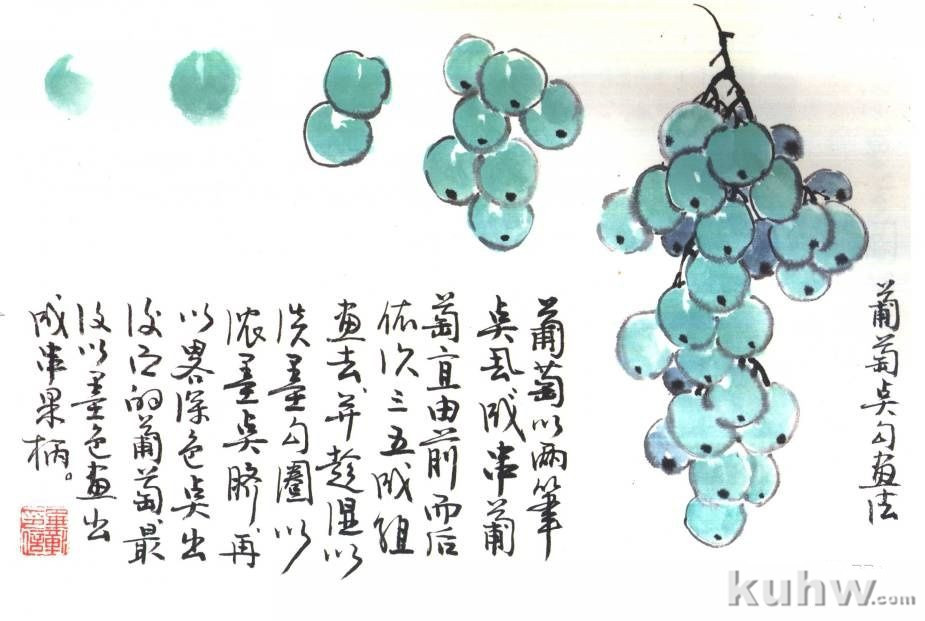 葡萄奌勾畫法
葡萄以两筆
奌成串葡
萄宜由前而后
依次三五成组
畫去并趁湿以
淡墨勾圈以
浓墨奌脐再
以畧深色奌出
後的葡萄最
後以墨色畫出
成串果柄。
kuhw.com